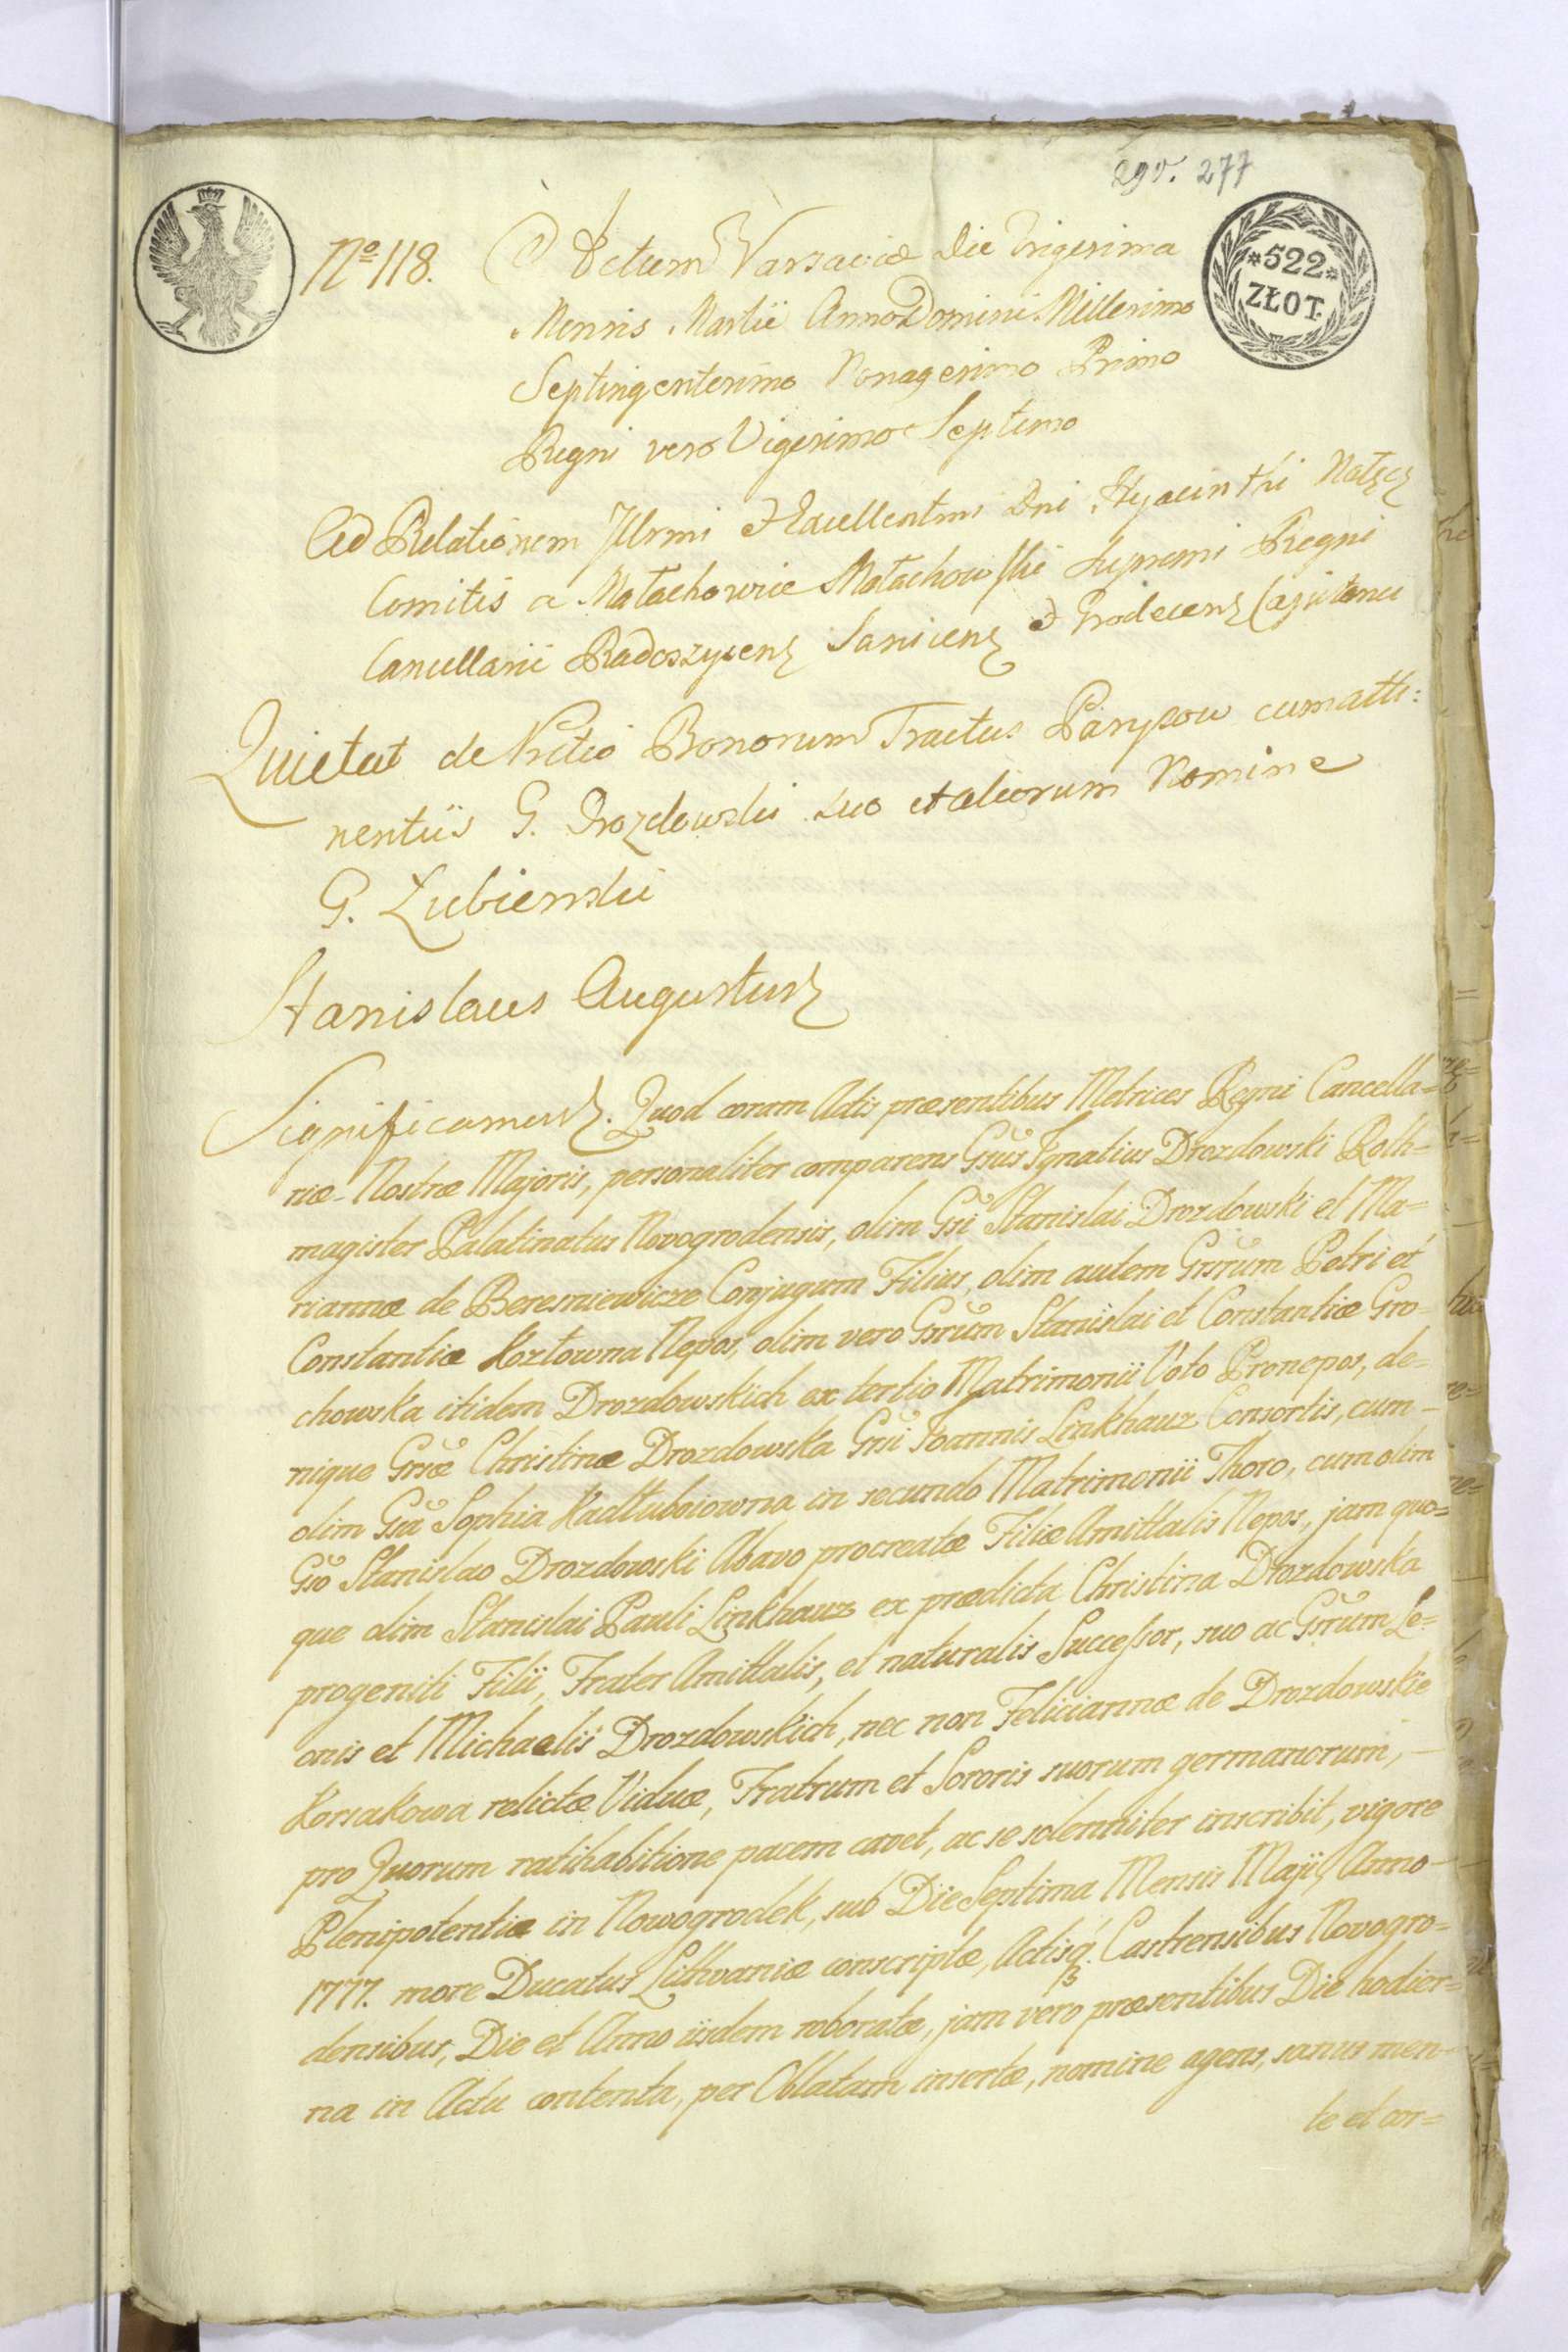 290. 277
*522*
ZŁOT.
No 118. Actum Varsaviæ Die Trigesima
Mensis Martii Anno Domini Millesimo
Septingentesimo Nonagesimo Primo
Regni vero Vigesimo Septimo
Ad Relationem Illrmi et Excellentmi Dni Hyacinthi Nałęcz
Comitis a Małachowice Małachowski Supremi Regni
Cancellarii Radoszycens Sanicens et Grodecens Capitanei
Quietat de Bonorum Tractus Parysow cum atti:
nentiis G. Drozdowski suo et aliorum Nomine
G. Łubienski
Stanislaus Augustus
Significamus. Quod coram Actis præsentibus Metrices Regni Cancella=
riæ Nostræ Majoris, personaliter comparens Gsus Ignatius Drozdowski Roth=
magister Palatinatus Novogrodensis, olim Gsi Stanislai Drozdowski et Ma=
riannæ de Beresniewicze Conjugum Filius, olim autem Gsrum Petri et
Constantiæ Kozłowna Nepos, olim vero Gsrum Stanislai et Constantiæ Gro=
chowska itidem Drozdowskich ex tertio Matrimonii Voto Pronepos, de=
nique Gsæ Christinæ Drozdowska Gsi Joannis Linkhauz Consortis, cum
olim Gsa Sophia Kadłubaiowna in secundo Matrimonii Thoro, cum olim
Gso Stanislao Drozdowski Abavo procreatæ Filiæ Amittalis Nepos, jam quo=
que olim Stanislai Pauli Linkhauz ex prædicta Christina Drozdowska
progeniti Filii, Frater Amittalis, et naturalis Successor, suo ac Gsrum Le=
onis et Michaelis Drozdowskich, nec non Feliciannæ de Drozdowskie
Korsakowa relictæ Viduæ, Fratrum et Sororis suorum germanorum, —
pro Quorum ratihabitione pacem cavet, ac se solenniter inscribit, vigore
Plenipotentiæ in Nowogrodek, sub Die Septima Mensis Maji, Anno
1777. more Ducatus Lithvaniæ conscriptæ, Actisq. Castrensibus Novogro=
densibus, Die et Anno iisdem roboratæ, jam vero præsentibus Die hodier=
na in Actu contenta, per Oblatam insertæ, nomine agens, sanus men=
te et cor=